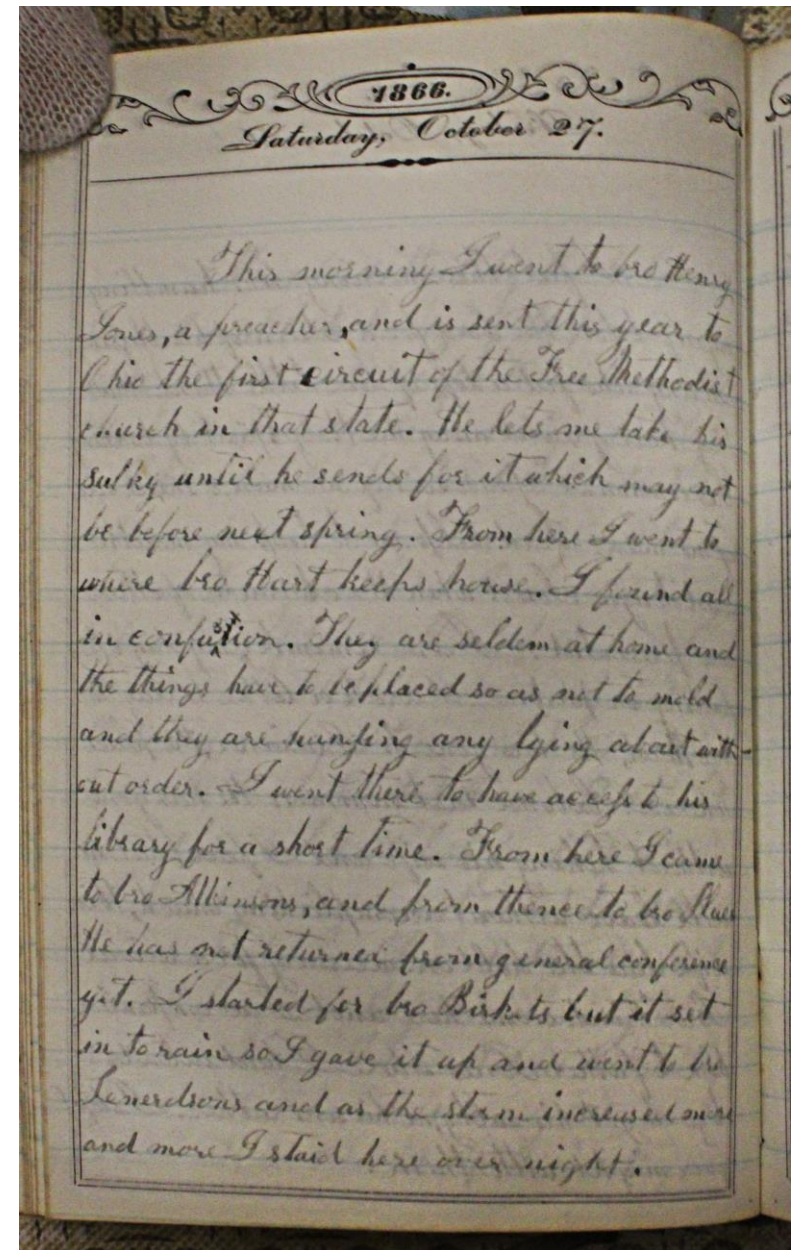 1866.
Saturday, October 27.
This morning I went to bro Henry
Jones, a preacher, and is sent this year to
Ohio the first circuit of the Free Methodist
church in that state. He lets me take his
sulky until he sends for it which may not
be before next spring. From here I went to
where bro Hart keeps house. I found all
in confusion. They are seldom at home and
the things have to be placed so as not to mold
and they are hanging any lying about with-
out order. I went there to have access to his
library for a short time. From here I came
to bro Atkinsons, and from thence to bro
He has not returned from general conference
yet. I started for bro Birkets but it set
in to rain so I gave it up and went to bro
Lenerdsons and as the storm increased more
and more I staid here over night.